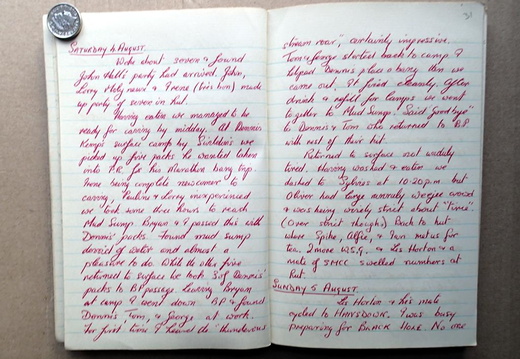 SATURDAY 4 AUGUST.
Woke about seven & found
John Hall's party had arrived. John,
Lorry Holy & Irene (his hen) made
up party of seven in hut.
Having eaten we managed to be
ready for caving by midday. At Dennis
Kemps surface camp by Swildon's we
picked up five packs he wanted taken
into for his Marathon bang trip.
Irene being complete newcomer to
caving, Pauline & Lorry inexperienced
we took some three hours to reach
Mud Sump. Bryan & I passed this with
Dennis' packs. Found mud sump
devoid of water and almost a
pleasure to do. While the other five
returned to surface we took 3 of Dennis'
packs to B.P. passage. Leaving Bryan
at camp I went down B.P. & found
Dennis, Tom, & George at work.
For first time I heard the "thunderous
31
stream roar", certainly impressive.
Tom & George started back to camp &
I helped Dennis place a bang then we
came out. It fired cleanly. After
drink & refill for lamps we went
together to Mud Sump. Said "Good Bye"
to Dennis & Tom who returned to B.P.
with rest of their kit.
Returned to surface not unduly
tired. Having washed & eaten we
dashed to at 10:20 p.m. but
Oliver had large crowd
& was being very strict about "time".
(Over strict though) Back to hut
where Spike, Alfie, & Ian met us for
tea. 2 more W.S.G. & Les Horton & a
mate of SMCC swelled numbers at
hut.
SUNDAY 5 AUGUST.
Les Horton & his mate
cycled to . I was busy
preparing for BLACK HOLE. No one